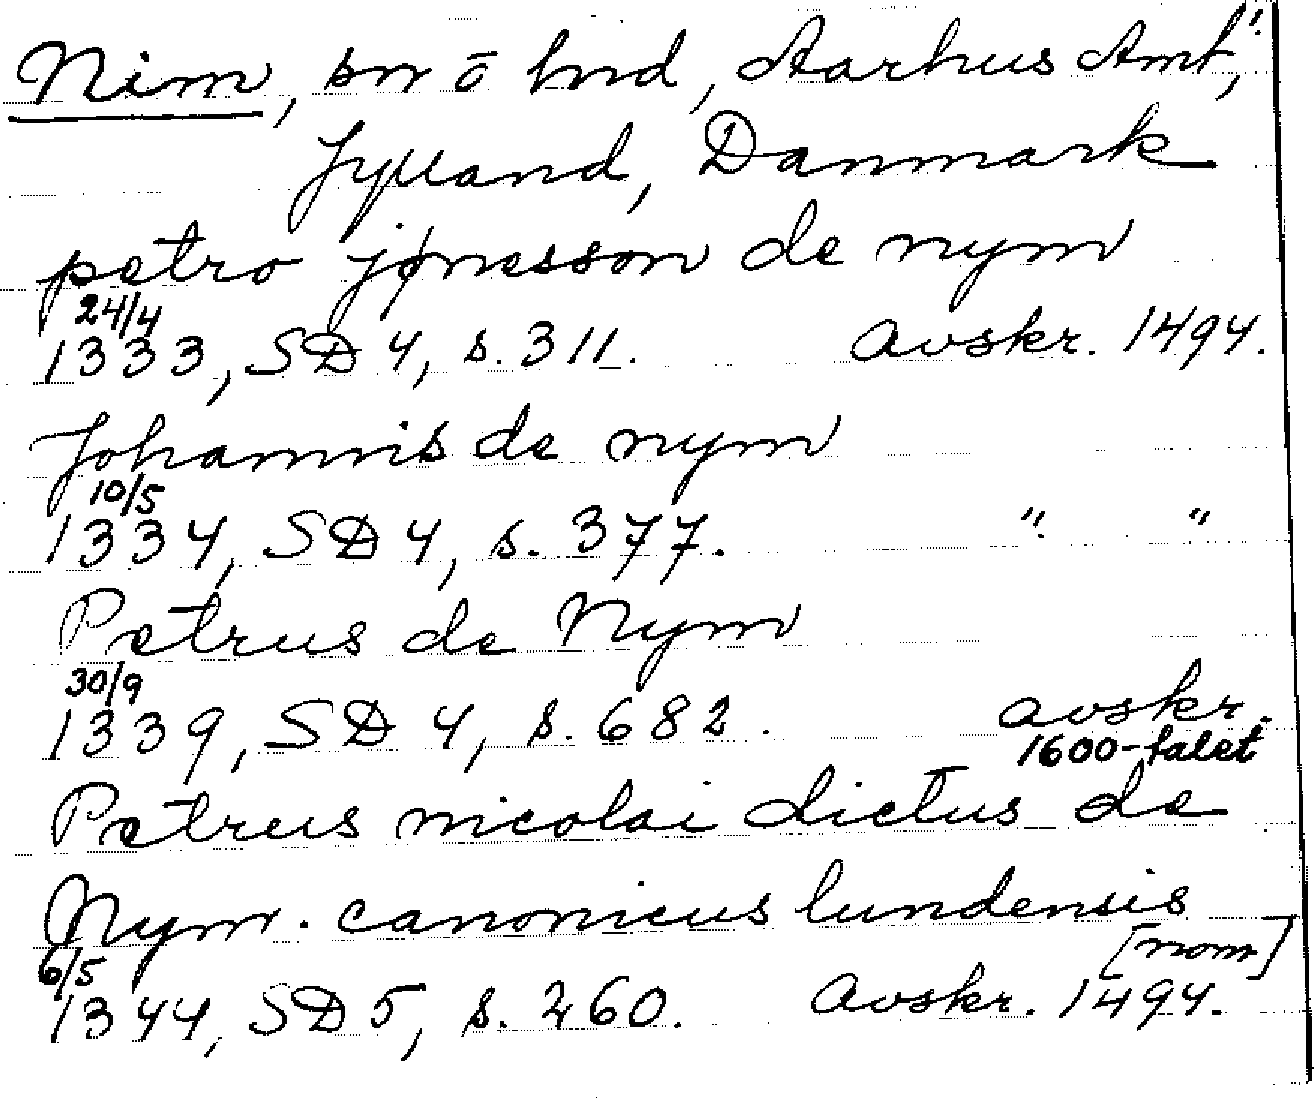 Nim, sn o hnd, Aarhus Amt,
Jylland, Danmark
petro jønesson de nym
24/4
1333, SD 4, s. 311. avskr. 1494.
Johannis de nym
10/5
1334, SD 4, s. 377. " "
Petrus de Nym
30/9
1339, SD 4, s. 682. avskr.
1600-talet
Petrus nicolai dictus de
Nym. canonicus lundensis
[nom]
6/5
1344, SD 5, s. 260. Avskr. 1494.